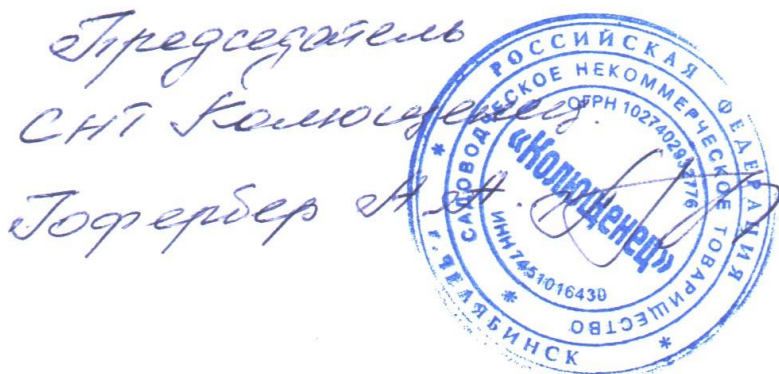 Председатель
СНТ Колющенец.
Гофербер А.А.
РОССИЙСКАЯ ФЕДЕРАЦИЯ
* г. ЧЕЛЯБИНСК *
САДОВОДЧЕСКОЕ НЕКОММЕРЧЕСКОЕ ТОВАРИЩЕСТВО
ИНН 7451016430
«Колющенец»